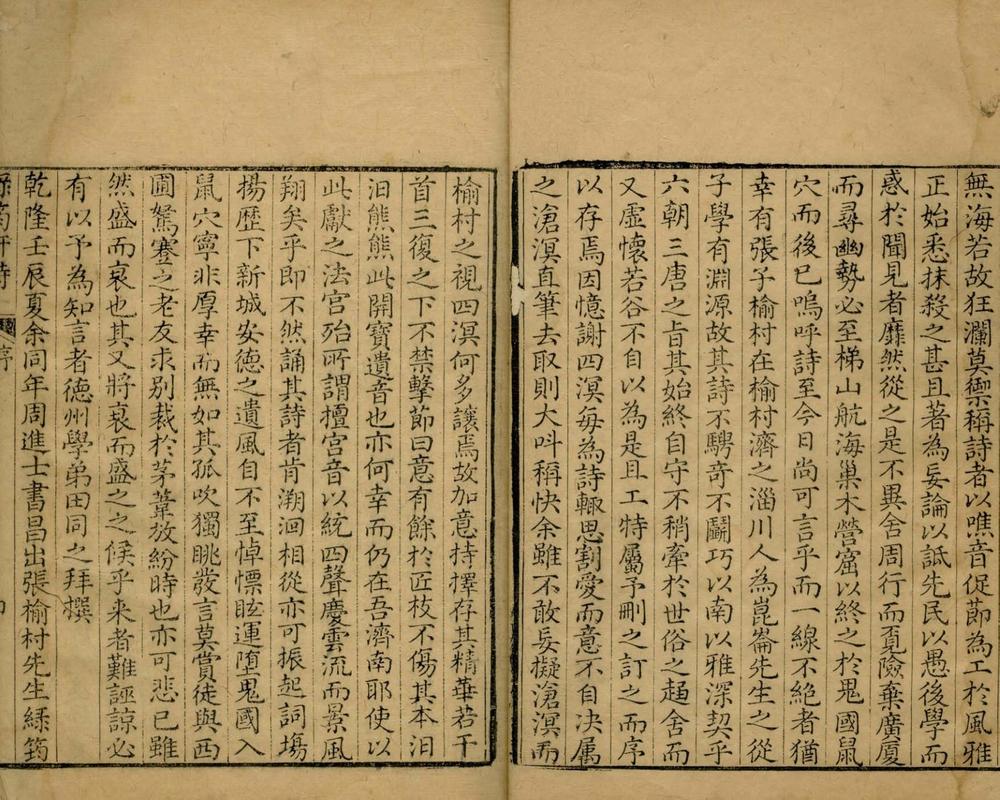 無海若故狂瀾莫禦稱詩者以噍音促節為工於風雅
正始悉抹殺之甚且著為妄論以詆先民以愚後學而
惑於聞見者靡然從之是不異舍周行而覔險棄廣廈
而尋幽勢必至梯山航海巢木營窟以終之於鬼國鼠
穴而後已嗚呼詩至今日尚可言乎而一線不絕者猶
幸有張子榆村在榆村濟之淄川人為崑崙先生之從
子學有淵源故其詩不騁奇不鬭巧以南以雅深契乎
六朝三唐之旨其始終自守不稍牽於世俗之趨舍而
又虛懷若谷不自以為是且工特屬予刪之訂之而序
以存焉因憶謝四溟每為詩輙思割愛而意不自決属
之滄溟直筆去取則大呌稱快余雖不敢妄擬滄溟而
榆村之視四溟何多讓焉故加意持擇存其精華若干
首三復之下不禁擊節曰意有餘於匠枝不傷其本汨
汨熊熊此開寶遺音也亦何幸而仍在吾濟南耶使以
此獻之法宮殆所謂檀宮音以統四聲慶雲流而景風
翔矣乎即不然誦其詩者肯溯洄相從亦可振起詞塲
揚歷下新城安德之遺風自不至悼慓眩運墮鬼國入
鼠穴寧非厚幸而無如其孤吹獨眺發言莫賞徒與西
圃駑蹇之老友求別裁於茅葦放紛時也亦可悲已雖
然盛而衰也其又將衰而盛之之候乎来者難誣諒必
有以予為知言者德州學弟田同之拜撰
序
乾隆壬辰夏余同年周進士書昌出張榆村先生綠筠